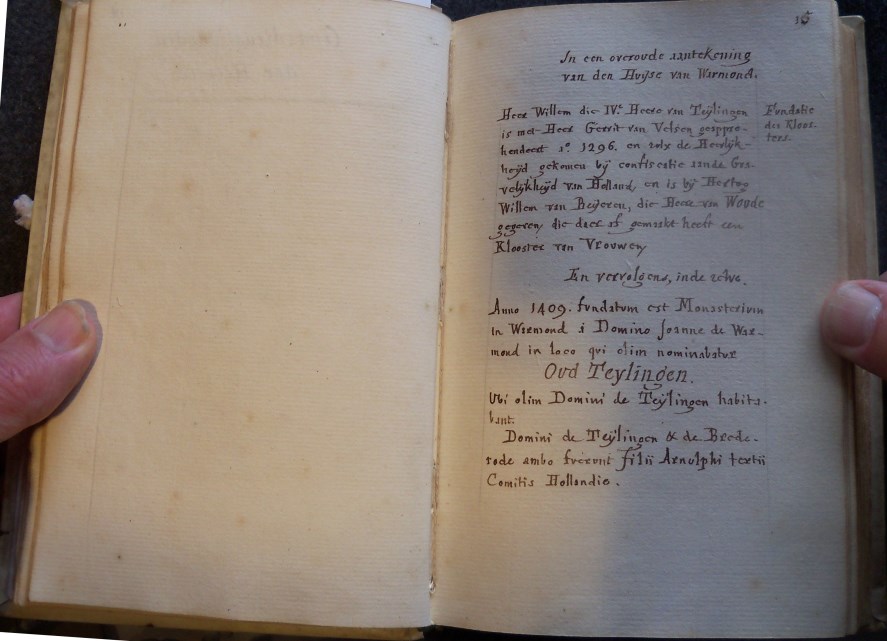 16
In een overoude aantekening
van den Huyse van Warmond.
Heer Willem die IVe. Heere van Teijlingen
is met Heer Gerrit van Velsen geappre-
hendeert ao. 1296. en zelx de Heerlijk-
heijd gekomen bij confiscatie aande Gra-
velijkheijd van Holland, en is bij Hertog
Willem van Beijeren, die Heere van Woude
gegeven, die daer af gemaakt heeft een
Klooster van Vrouwen
Fundatie
des Kloos-
ters.
En vervolgens, inde zelve.
Anno 1409. fundatum est Monasterium
in Warmond à Domino Joanne de War-
mond in loco qui olim nominabatur
Oud Teylingen.
Ubi olim Domini de Teijlingen habita-
bant.
Domini de Teijlingen & de Brede-
rode ambo fuerunt filii Arnulphi tertii
Comitis Hollandie.